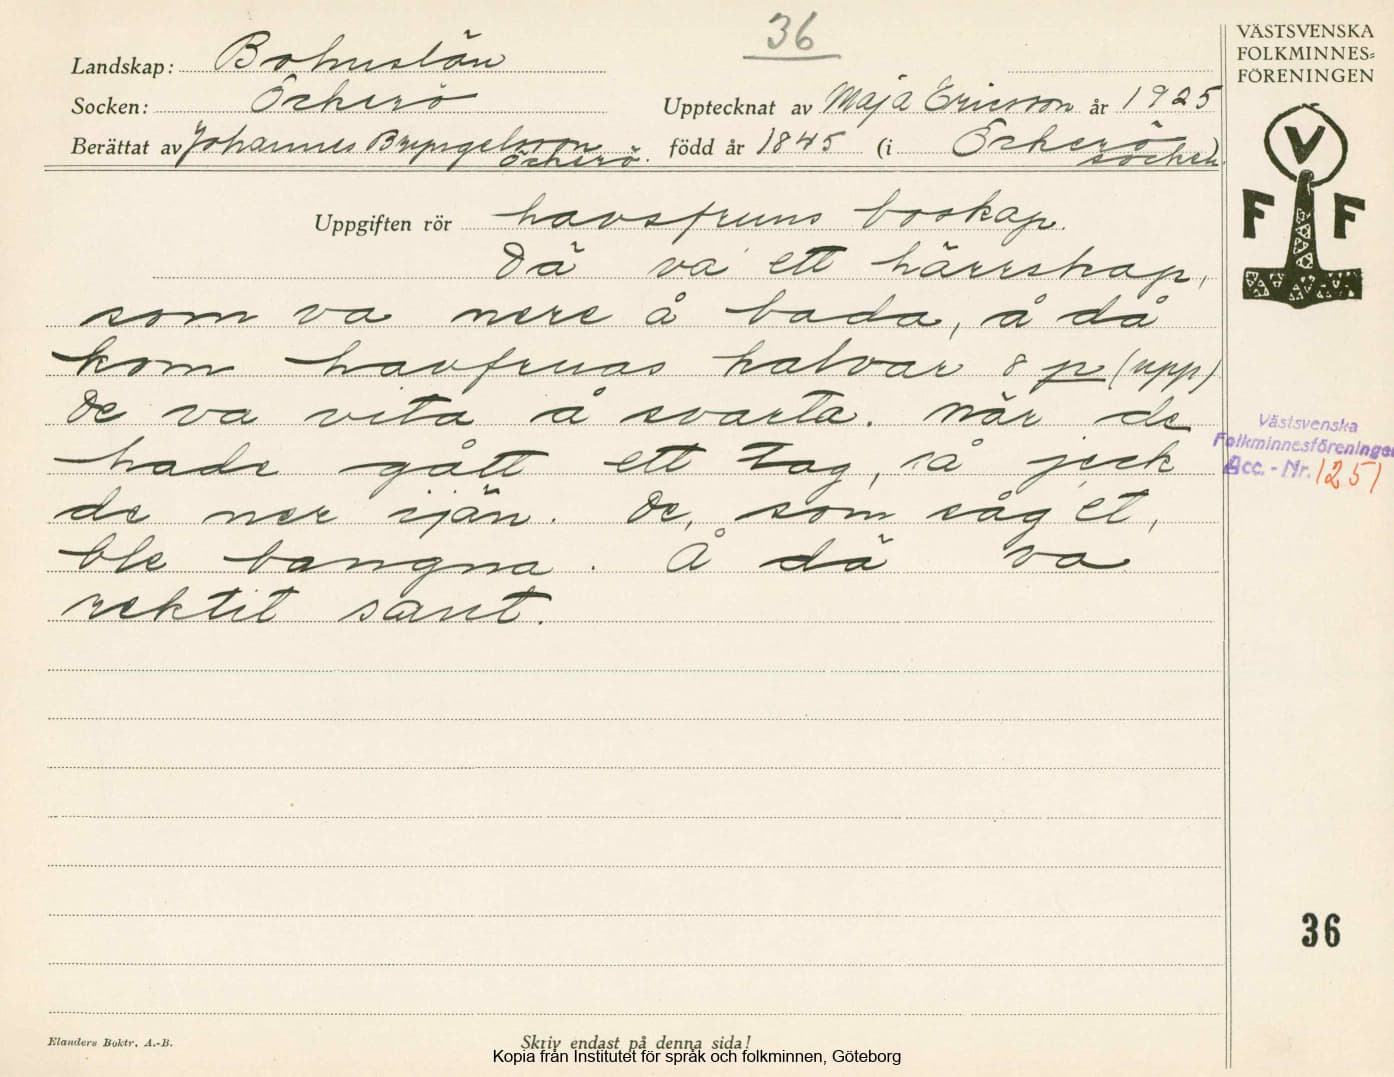 36
VÄSTSVENSKA
FOLKMINNES=
FÖRENINGEN
Landskap: Bohuslän
Socken: Öckerö
Upptecknat av Maja Ericsson år 1925
Berättat av Johannes Bryngelsson
Öckerö.
född år 1845 (i Öckerö
socken)
V
F F
Uppgiften rör havsfruns boskap.
Dä va ett härrskap,
som va nere å bada, å då
kom havfruas kalvar öp (upp)
De va vita å svarta. När de
hade gått ett tag, så jeck
de ner ijän. De, som såg et,
ble bangna. Å dä va
rektit sant.
Västsvenska
Folkminnesföreningen
Acc. - Nr. 1251
36
Elanders Boktr. A.-B.
Skriv endast på denna sida!
Kopia från Institutet för språk och folkminnen, Göteborg